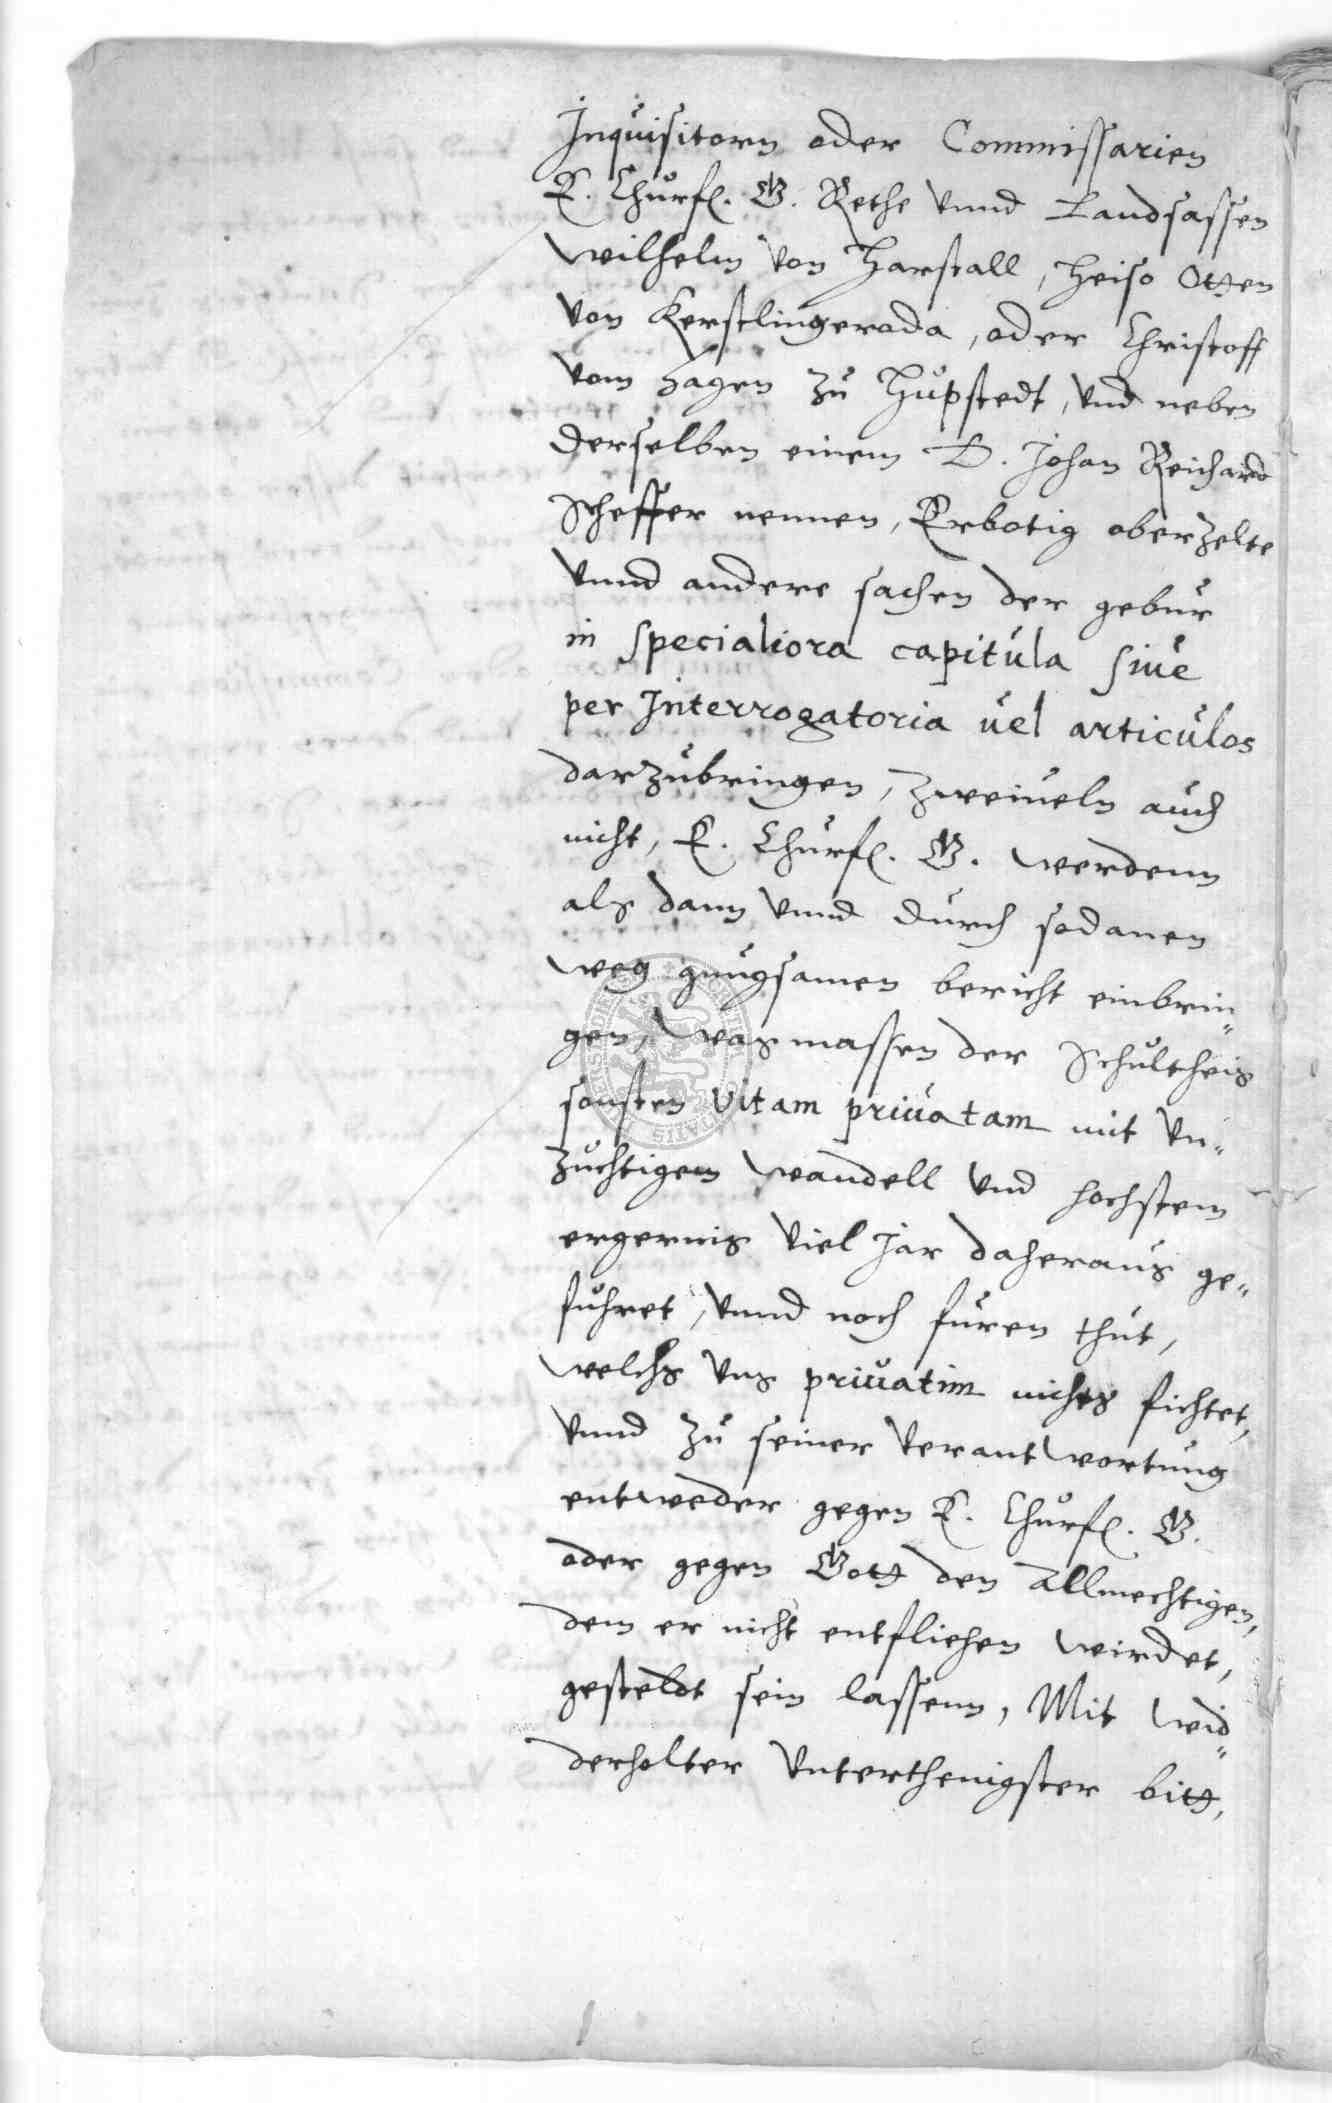 Inquisitorn oder Commissarien
E. Churfl. G. Rethe vnnd Landsassen
Wilhelm von Harstall, Heiso Otten
von Kerstlingeroda, oder Christoff
vom Hagen zu Hüpstedt, vnd neben
derselben einem D. Johan Reichard
Scheffer nennen, Erbotig oberzelte
vnnd andere sachen der gebur
in specialiora capitula siue
per Interrogatoria uel articulos
darzubringen, zweiueln auch
nicht, E. Churfl. G. werdenn
als dann vnnd durch sodanen
weg gnugsamen bericht einbrin„
gen, was massen der Schultheis
sonsten vitam priuatam mit vn„
zuchtigem wandell vnd hochstem
ergernis viel Jar daheraus ge„
fuhret, vnnd noch furen thut,
welchs vns priuatim nichts fichtet,
vnnd zu seiner verantwortung
entweder gegen E. Churfl. G.
oder gegen Gott den Allmechtigen,
dem er nicht entfliehen wirdet,
gesteldt sein lassenn, Mit wid„
derholter vnterthenigster bitt,